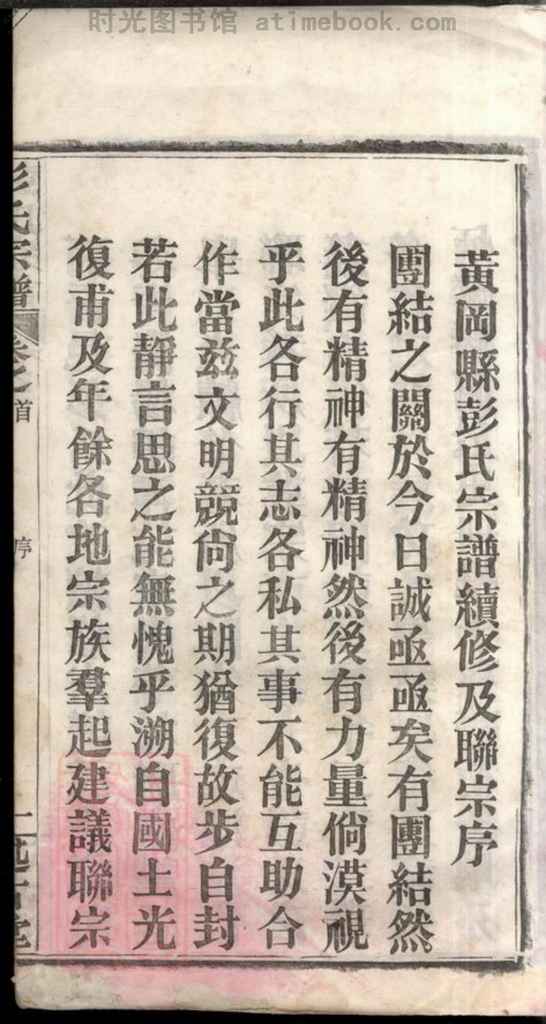 时光图书馆 atimebook.com
黃岡縣彭氏宗譜續修及聯宗序
團結之關於今日誠亟亟矣有團結然
後有精神有精神然後有力量倘漠視
乎此各行其志各私其事不能互助合
作當兹文明競尙之期猶復故步自封
若此靜言思之能無愧乎溯自國土光
復甫及年餘各地宗族羣起建議聯宗
彭氏宗譜 卷之首 序 一